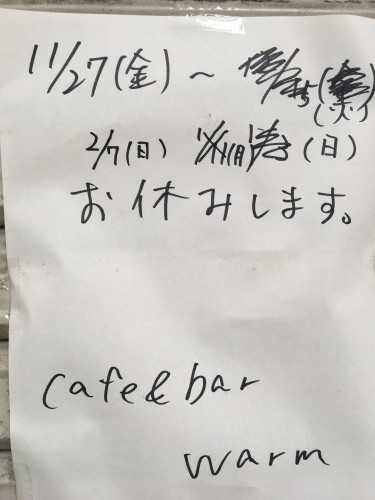 11/27(金)~
(火)
2/7(日) (日)
お休みします。
cafe&bar
warm